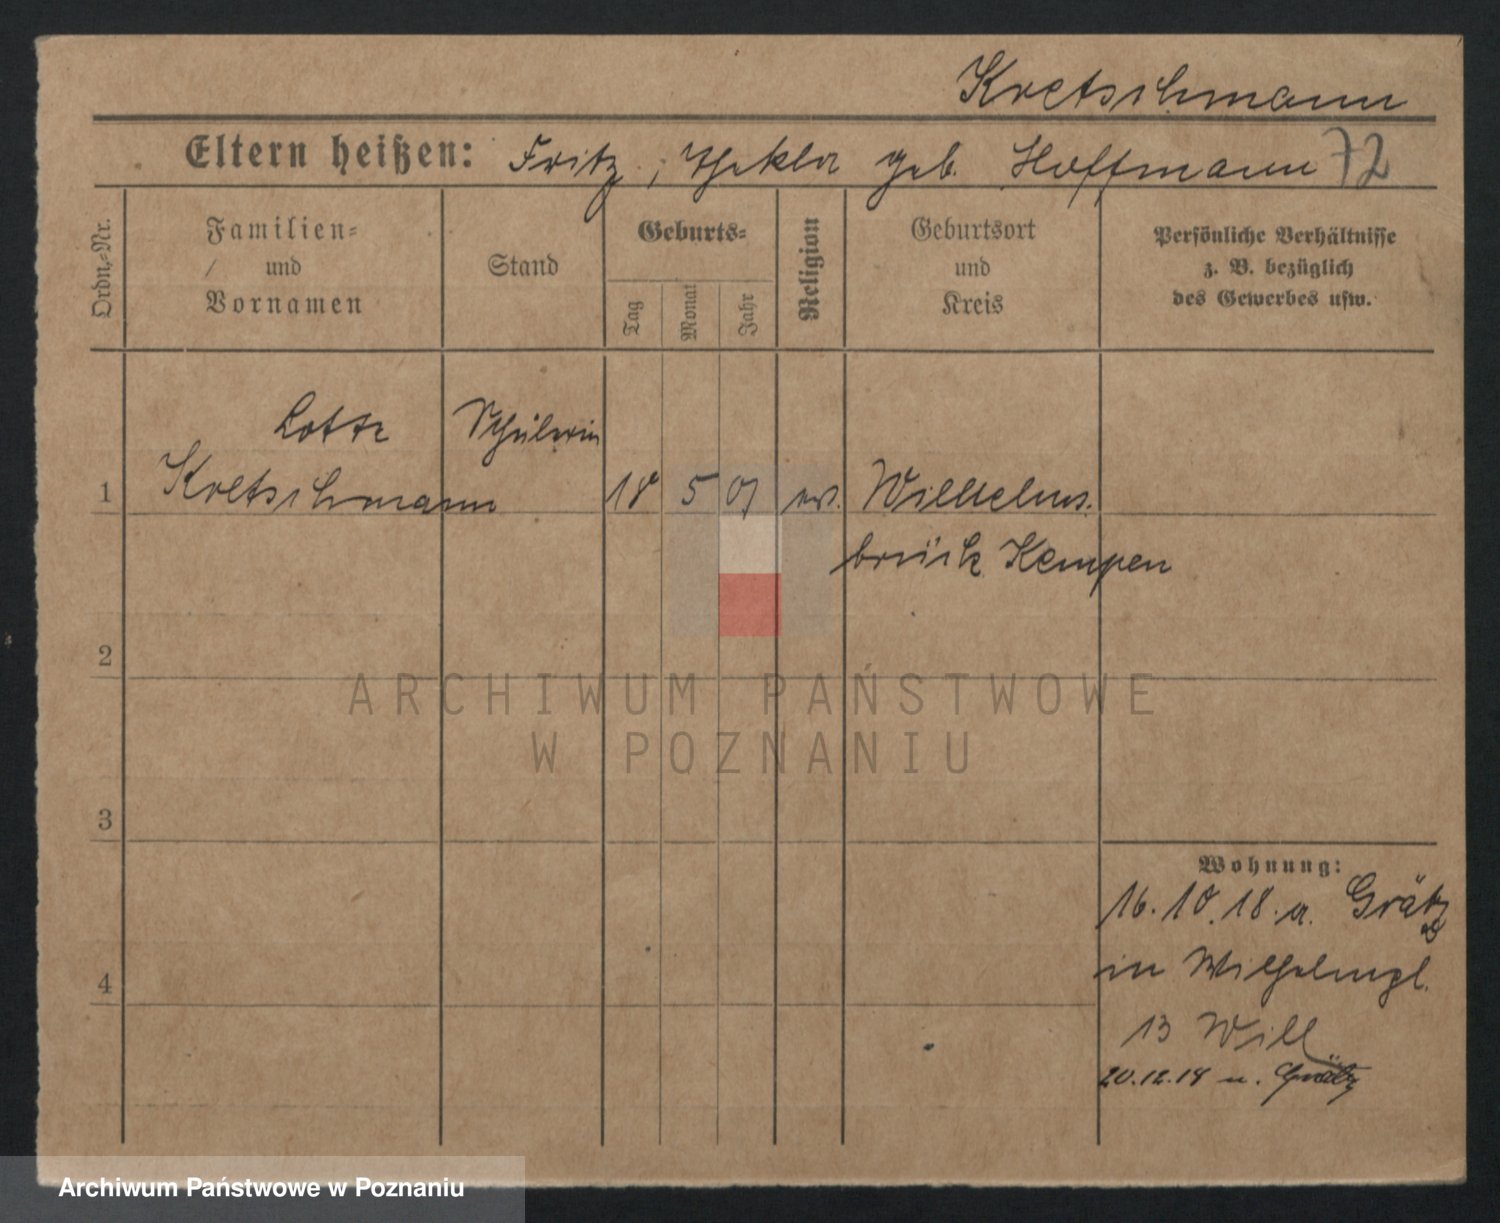 Kretschmann
Eltern heißen: Fritz, Thekla geb. Hoffmann 72
Ordn.-Nr.
Familien-
und
Vornamen
Stand
Geburts-
Tag
Monat
Jahr
Religion
Geburtsort
und
Kreis
Persönliche Verhältnisse
z. B. bezüglich
des Gewerbes usw.
Lotte Schülerin
1 Kretschmann 18 5 07 ev. Wilhelms.
brück Kempen
2
ARCHIWUM PAŃSTWOWE
W POZNANIU
3
Wohnung:
16.10.18. a. Grätz
in Wilhelmpl.
4
13 Will
20.12.18 n. Grätz
Archiwum Państwowe w Poznaniu